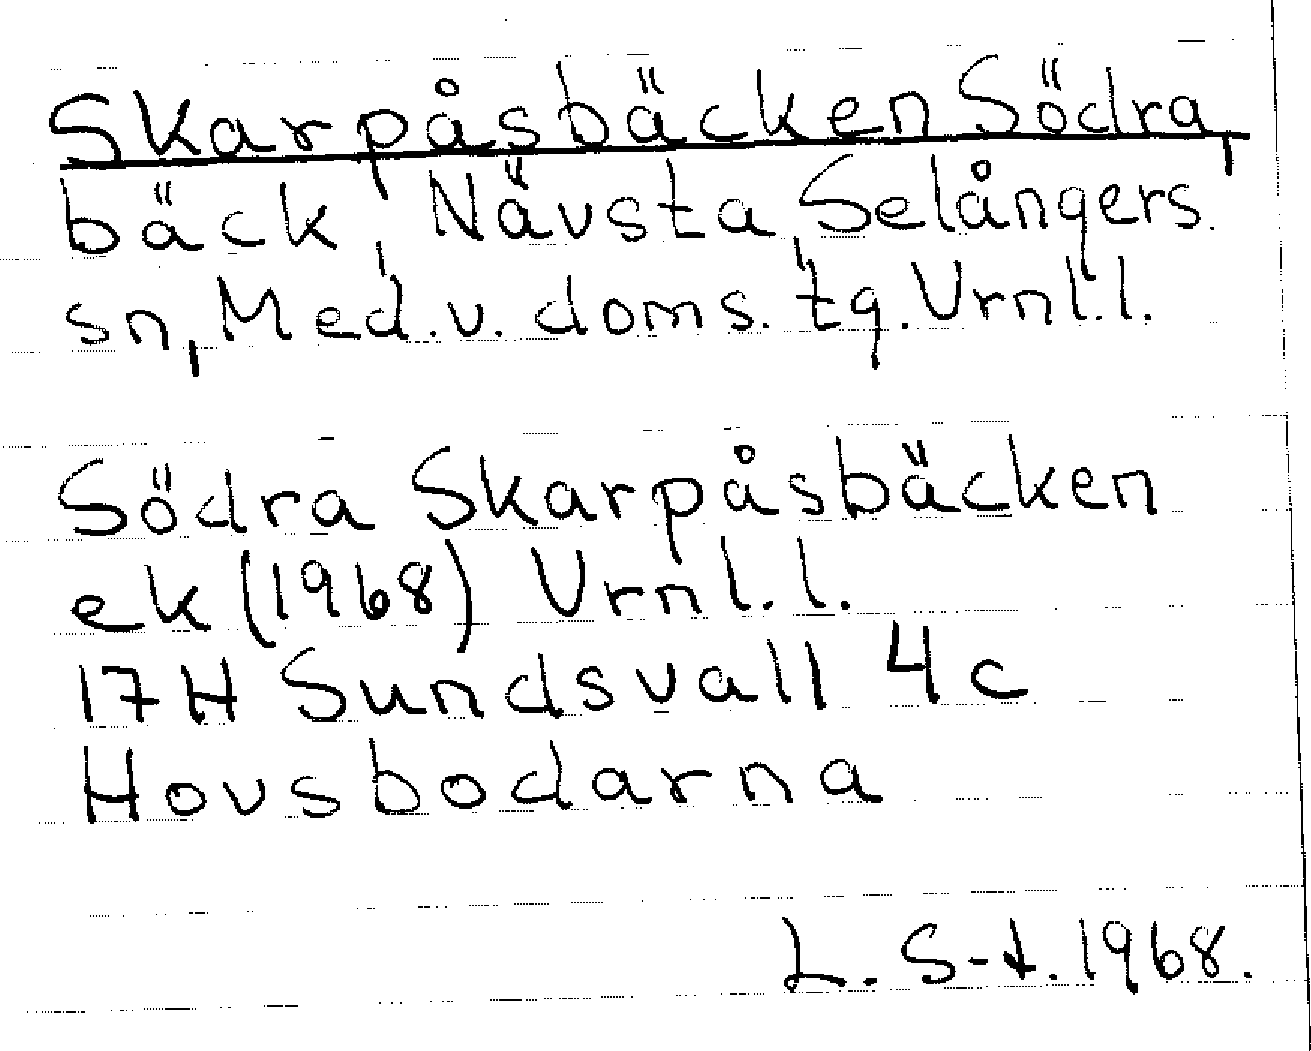 Skarpåsbäcken Södra,
bäck, Nävsta, Selångers
sn, Med. v. doms. tg. Vrnl. l.
Södra Skarpåsbäcken
ek (1968) Vrnl. l.
17H Sundsvall 4c
Hovsbodarna
L. S-t. 1968.